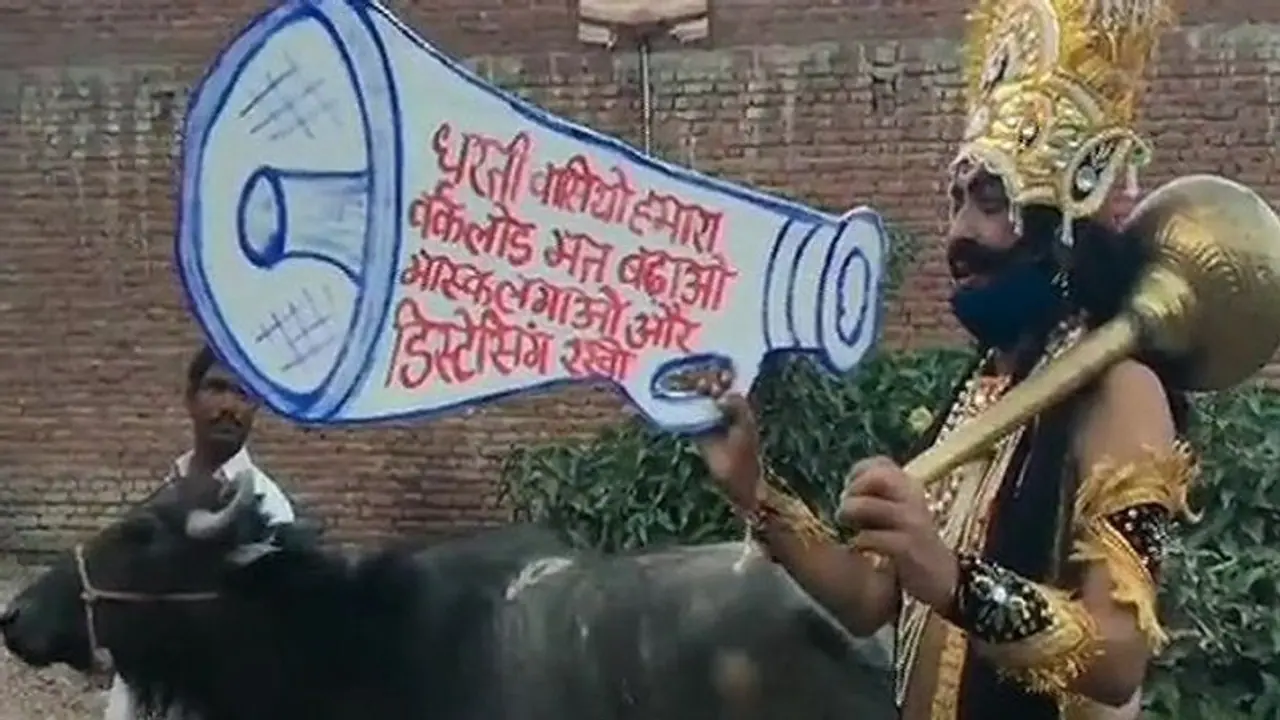 धरती वासियो हमारा
वर्कलोड मत बढ़ाओ
मास्क लगाओ और
डिस्टेसिंग रखो